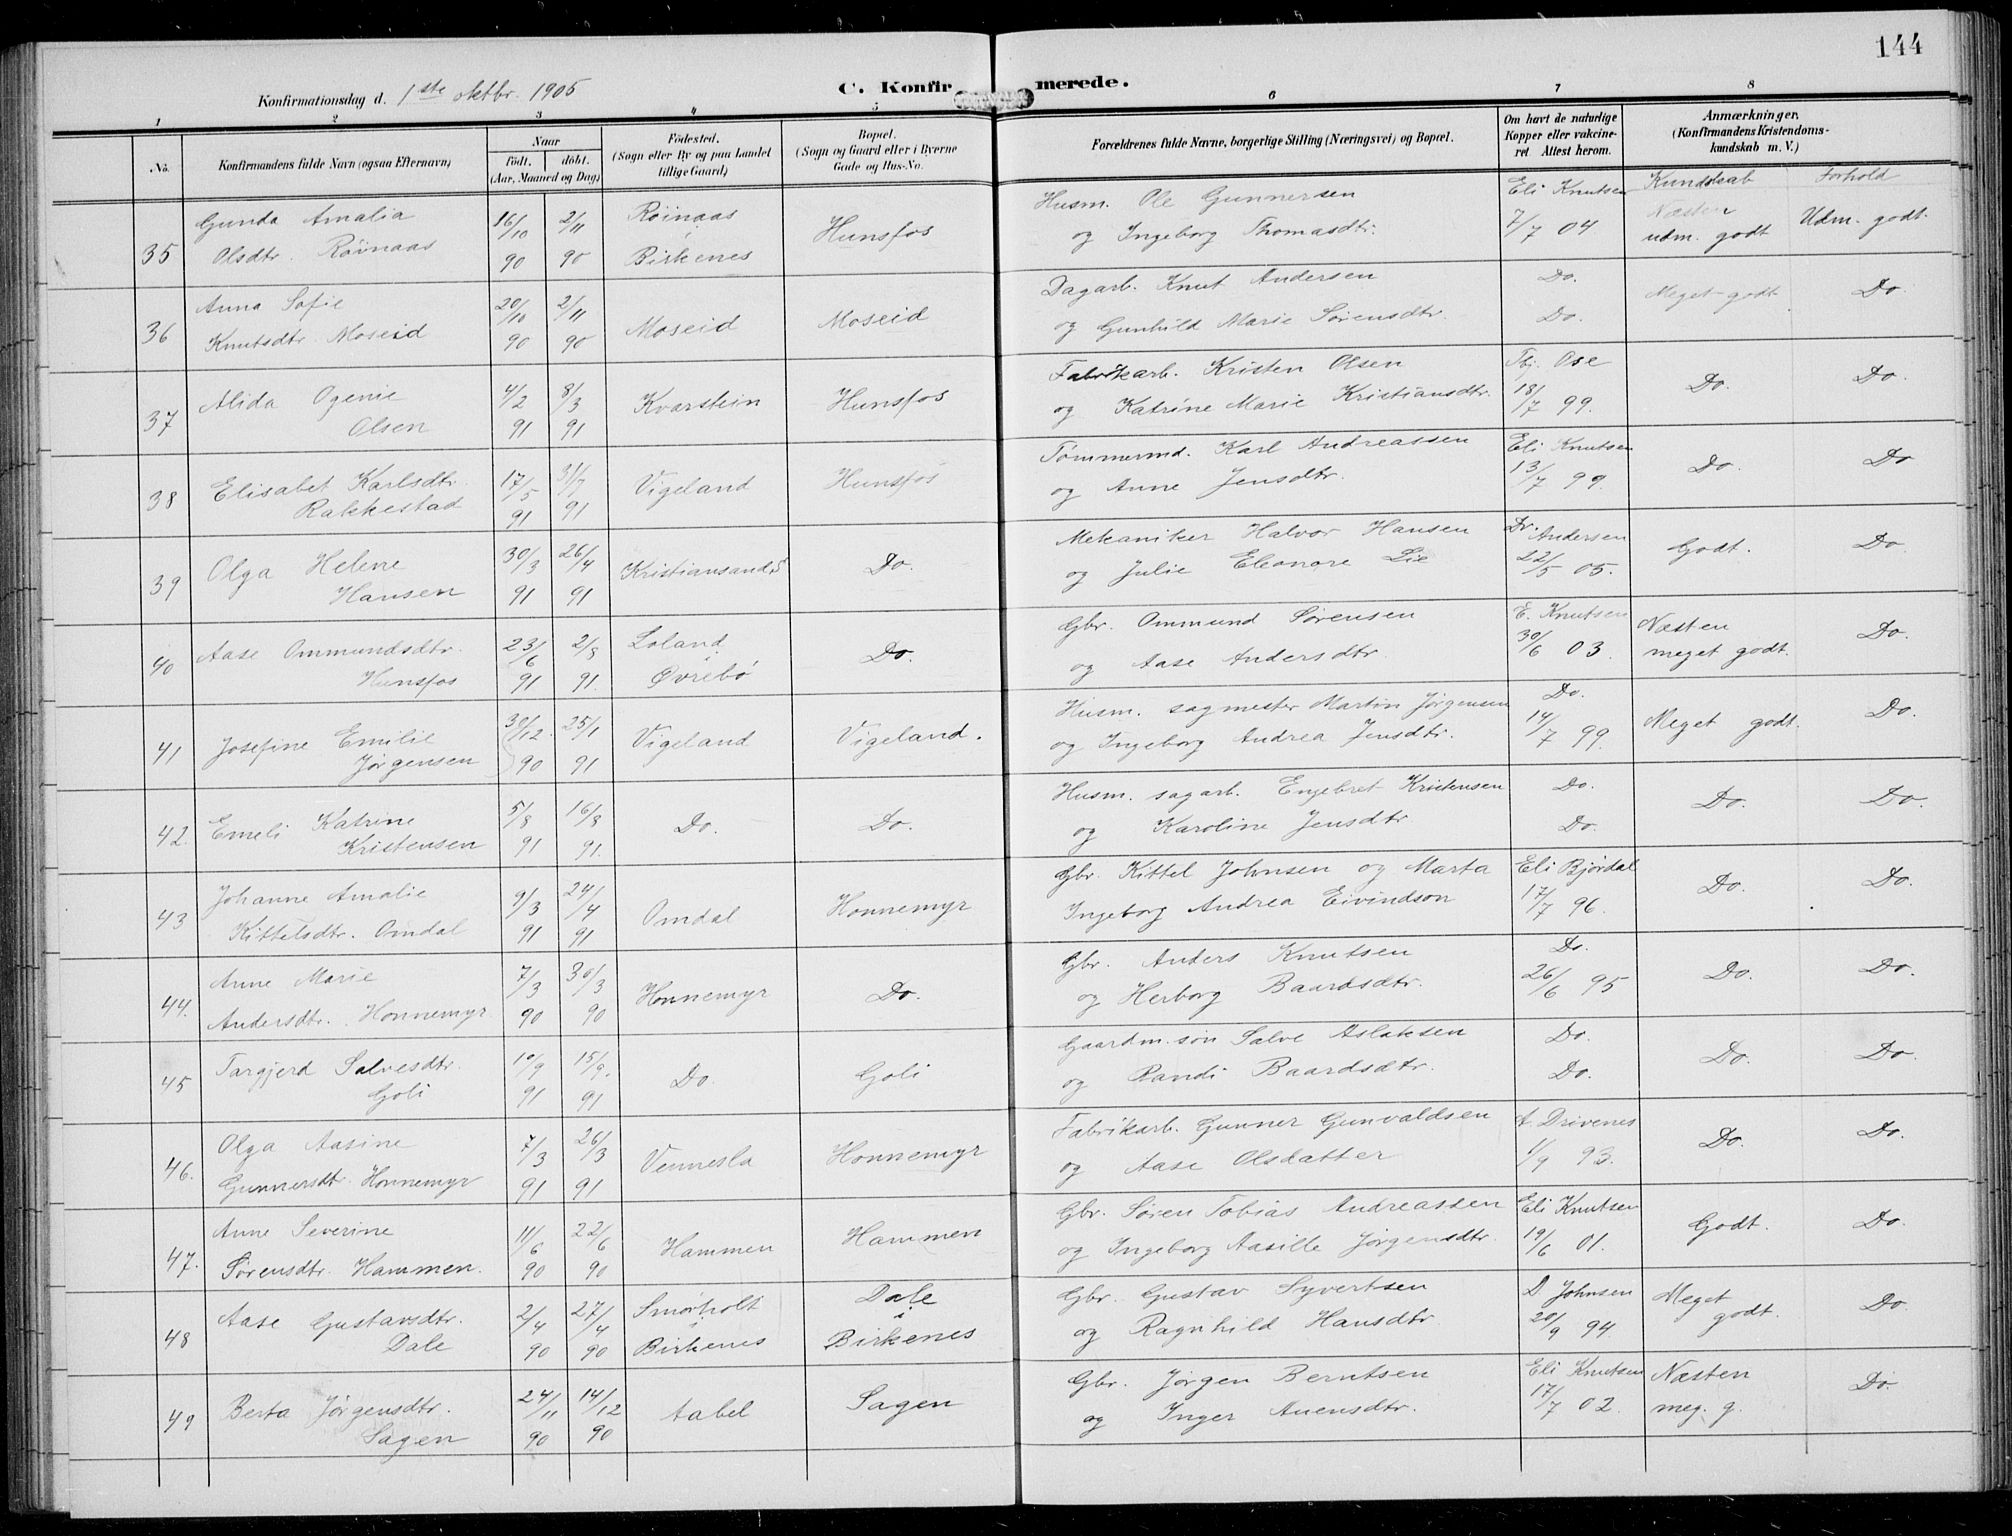 144
Konfirmationsdag d. 1ste oktbr. 1905
C. Konfirmerede.
1 2 3 4 5 6 7 8
No. Konfirmandens fulde Navn (ogsaa Efternavn) Naar født, døbt. (Aar, Maaned og Dag) Födested. (Sogn eller By og paa Landet tillige Gaard) Bopæl. (Sogn og Gaard eller i Byerne Gade og Hus-No. Forældrenes fulde Navne, borgerlige Stilling (Næringsvei) og Bopæl. Om havt de naturlige Kopper eller vakcineret. Attest herom. Anmærkninger. (Konfirmandens Kristendomskundskab m. V.)
Kundskab Forhold
35 Gunda Amalia Olsdtr. Røinaas 16/10 90 2/11 90 Røinaas i Birkenes Hunsfos Husm. Ole Gunnersen og Ingeborg Thomasdtr. Eli Knutsen 7/7 04 Næsten udm. godt Udm. godt.
36 Anna Sofie Knutsdtr. Moseid 20/10 90 2/11 90 Moseid Moseid Dagarb. Knut Andersen og Gunhild Marie Sørensdtr. Do. Do. Meget godt Do.
37 Alida Ogenie Olsen 4/2 91 8/3 91 Kvarstein Hunsfos Fabrikarb. Kristen Olsen og Katrine Marie Kristiansdtr. Tbj. Ose 18/7 99. Do. Do.
38 Elisabet Karlsdtr. Rakkestad 17/5 91 31/7 91 Vigeland Hunsfos Tømmermd. Karl Andreassen og Anne Jensdtr. Eli Knutsen 13/7 99. Do. Do
39 Olga Helene Hansen 30/3 91 26/4 91 Kristianssand Do. Mekaniker Halvor Hansen og Julie Eleonore Lie Dr. Andersen 22/5 05. Godt. Do.
40 Aase Ommundsdtr. Hunsfos 23/6 91 2/8 91. Loland Øvrebø Do. Gbr. Ommund Sørensen og Aase Andersdtr. E. Knutsen 30/6 03. Næsten meget godt. Do.
41 Josefine Emilie Jørgensen 30/12 90 25/1 91 Vigeland Vigeland. Husm. sagmester Martin Jørgensen og Ingeborg Andrea Jensdtr. Do. 14/7 99. Meget godt. Do.
42. Emeli Katrine Kristensen 5/8 91 16/8 91. Do. Do. Husm. sagarb. Engebret Kristensen og Karoline Jensdtr. Do. Do. Do. Do.
43 Johanne Amalie Kittelsdtr. Omdal 9/3 91 24/4 91 Omdal Honnemyr Gbr. Kittel Johnsen og Marta Ingeborg Andrea Eivindson Eli Bjørdal 17/7 96. Do. Do.
44. Anne Marie Andersdtr. Honnemyr 7/3 90 30/3 90 Honnemyr Do. Gbr. Anders Knutsen og Herborg Baardsdtr. Do. 26/6 95 Do. Do.
45 Targjerd Salvesdtr. Goli 10/9 91 15/9. 91 Do. Goli Gaardm.søn Salve Aslaksen og Randi Baardsdtr. Do. Do. Do. Do.
46. Olga Aasine Gunnersdtr. Honnemyr 7/3 91 26/3 91 Vennesla Honnemyr Fabrikarb. Gunner Gunvaldsen og Aase Olsdatter A. Drivenes 1/9 93. Do. Do.
47. Anne Severine Sørensdtr. Hammen. 11/6 90 22/6 90 Hammen Hammen Gbr. Søren Tobias Andreassen og Ingeborg Aasille Jørgensdtr. Eli Knutsen 19/6 01. Godt. Do.
48 Aase Gustavsdtr. Dale 2/4 90 27/4 90 Smørholt i Birkenes Dale i Birkenes Gbr. Gustav Syvertsen og Ragnhild Hansdtr. D. Johnsen 20/9 94 Meget godt. Do.
49 Berta Jørgensdtr. Sagen 24/11 90 14/12 90 Aabel Sagen Gbr. Jørgen Berntsen og Inger Auensdtr. Eli Knutsen 17/7 02. Næsten meg. g. Do.